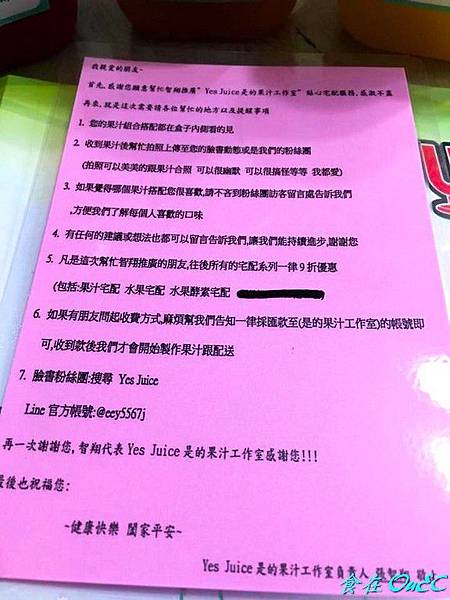 我親愛的朋友~
首先,感謝您願意幫忙智翔推廣"Yes Juice是的果汁工作室"貼心宅配服務,感激不盡
再來,就是這次需要請各位幫忙的地方以及提醒事項
1. 您的果汁組合搭配都在盒子內側看的見
2. 收到果汁後幫忙拍照上傳至您的臉書動態或是我們的粉絲團
(拍照可以美美的跟果汁合照 可以很幽默 可以很搞怪等等 我都愛)
3. 如果覺得哪個果汁搭配您很喜歡,請不吝到粉絲團訪客留言處告訴我們
,方便我們了解每個人喜歡的口味
4. 有任何的建議或想法也都可以留言告訴我們,讓我們能持續進步,謝謝您
5. 凡是這次幫忙智翔推廣的朋友,往後所有的宅配系列一律9折優惠
(包括:果汁宅配 水果宅配 水果酵素宅配
6. 如果有朋友問起收費方式,麻煩幫我們告知一律採匯款至(是的果汁工作室)的帳號即
可,收到款後我們才會開始製作果汁跟配送
7. 臉書粉絲團:搜尋 Yes Juice
Line 官方帳號:@eey5567j
再一次謝謝您,智翔代表 Yes Juice 是的果汁工作室感謝您!!!
最後也祝福您:
~健康快樂 闔家平安~
Yes Juice 是的果汁工作室負責人 張智翔 敬上
食在 OuSC